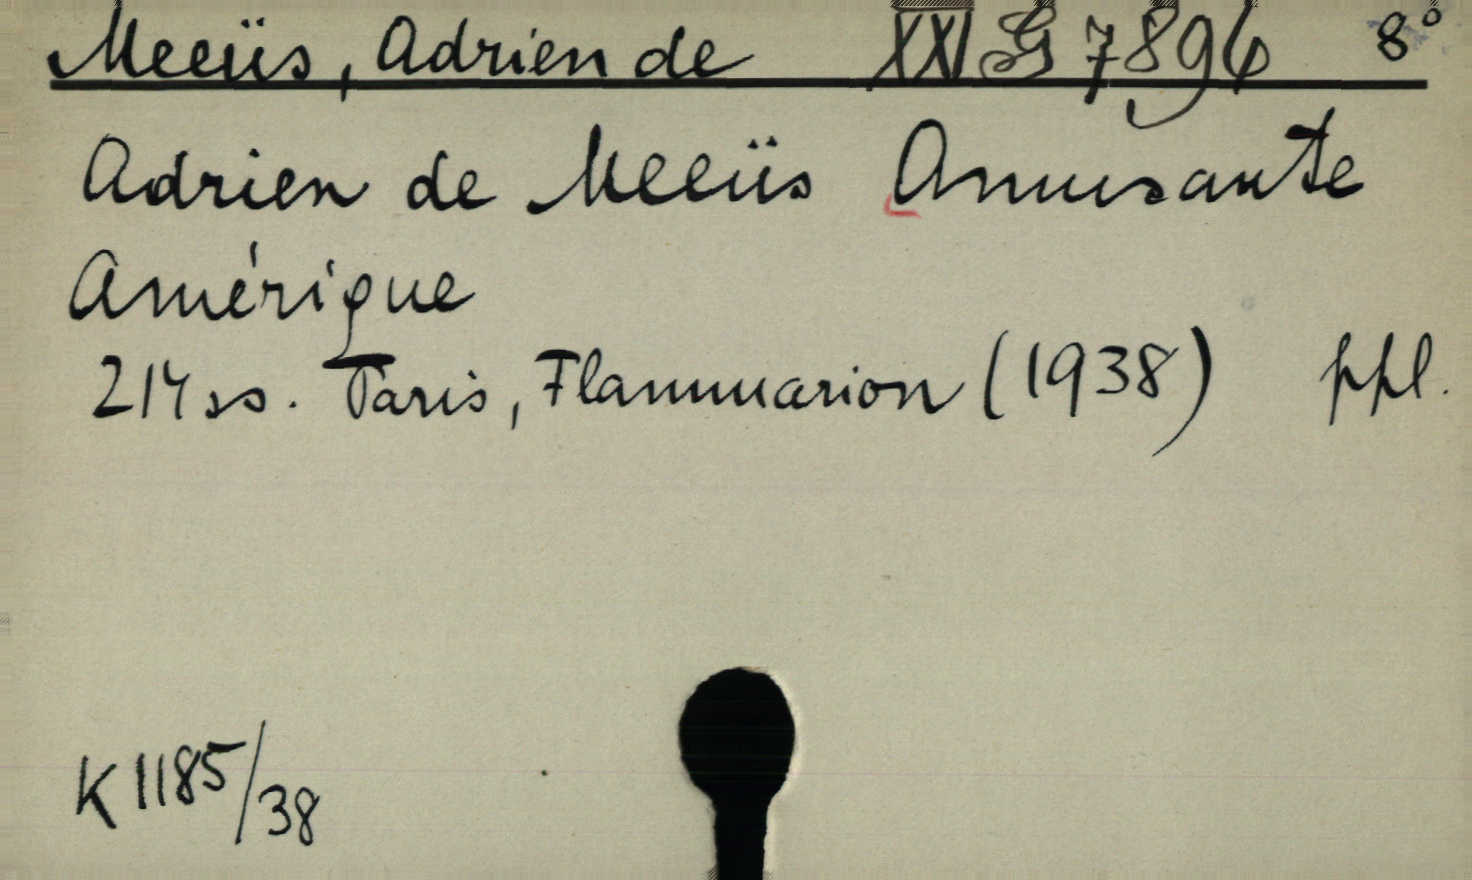 Meeüs, Adrien de XXI G 7896 8°
Adrien de Meeüs Amusante
Amérique
214 ss. Paris, Flammarion (1938) ppl.
K 1185/38